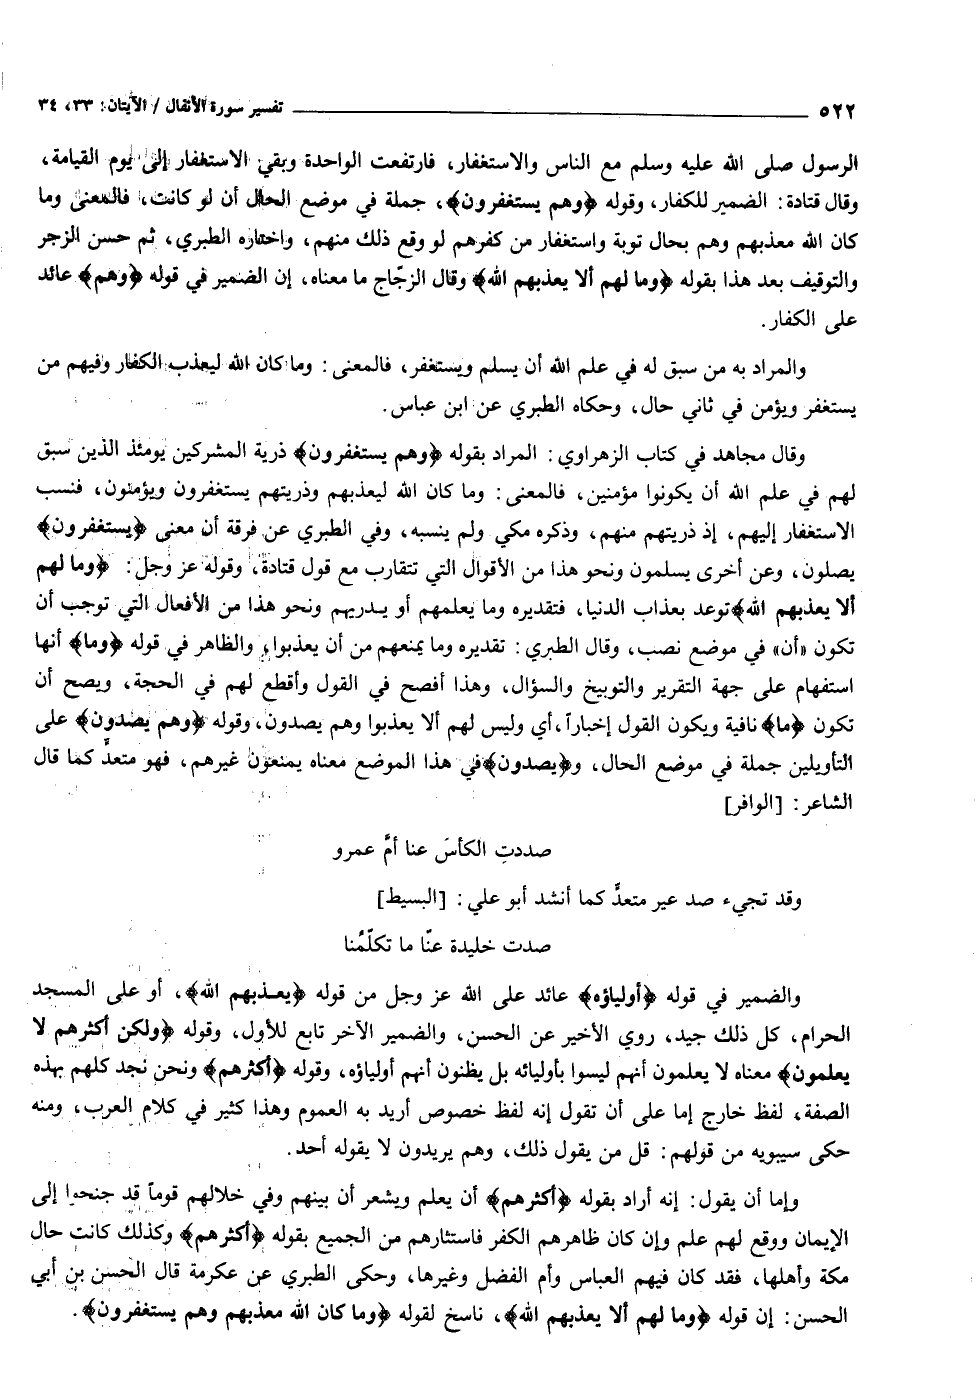 ٥٢٢ ــــــــــــــــــــ تفسير سورة الأنفال / الآيتان: ٣٣، ٣٤
الرسول صلى الله عليه وسلم مع الناس والاستغفار، فارتفعت الواحدة وبقي الاستغفار إلى يوم القيامة،
وقال قتادة: الضمير للكفار، وقوله ﴿وهم يستغفرون﴾، جملة في موضع الحال أن لو كانت، فالمعنى وما
كان الله معذبهم وهم بحال توبة واستغفار من كفرهم لو وقع ذلك منهم، واختاره الطبري، ثم حسن الزجر
والتوقيف بعد هذا بقوله ﴿وما لهم ألا يعذبهم الله﴾ وقال الزجّاج ما معناه، إن الضمير في قوله ﴿وهم﴾ عائد
على الكفار.
والمراد به من سبق له في علم الله أن يسلم ويستغفر، فالمعنى: وما كان الله ليعذب الكفار وفيهم من
يستغفر ويؤمن في ثاني حال، وحكاه الطبري عن ابن عباس.
وقال مجاهد في كتاب الزهراوي: المراد بقوله ﴿وهم يستغفرون﴾ ذرية المشركين يومئذ الذين سبق
لهم في علم الله أن يكونوا مؤمنين، فالمعنى: وما كان الله ليعذبهم وذريتهم يستغفرون ويؤمنون، فنسب
الاستغفار إليهم، إذ ذريتهم منهم، وذكره مكي ولم ينسبه، وفي الطبري عن فرقة أن معنى ﴿يستغفرون﴾
يصلون، وعن أخرى يسلمون ونحو هذا من الأقوال التي تتقارب مع قول قتادة، وقوله عز وجل: ﴿وما لهم
ألا يعذبهم الله﴾ توعد بعذاب الدنيا، فتقديره وما يعلمهم أو يدريهم ونحو هذا من الأفعال التي توجب أن
تكون «أن» في موضع نصب، وقال الطبري: تقديره وما يمنعهم من أن يعذبوا، والظاهر في قوله ﴿وما﴾ أنها
استفهام على جهة التقرير والتوبيخ والسؤال، وهذا أفصح في القول وأقطع لهم في الحجة، ويصح أن
تكون ﴿ما﴾ نافية ويكون القول إخباراً، أي وليس لهم ألا يعذبوا وهم يصدون، وقوله ﴿وهم يصدون﴾ على
التأويلين جملة في موضع الحال، و﴿يصدون﴾ في هذا الموضع معناه يمنعون غيرهم، فهو متعدٍّ كما قال
الشاعر: [الوافر]
صددتِ الكأسَ عنا أمَّ عمرو
وقد تجيء صد عير متعدٍّ كما أنشد أبو علي: [البسيط]
صدت خليدة عنّا ما تكلّمُنا
والضمير في قوله ﴿أولياؤه﴾ عائد على الله عز وجل من قوله ﴿يعذبهم الله﴾، أو على المسجد
الحرام، كل ذلك جيد، روي الأخير عن الحسن، والضمير الآخر تابع للأول، وقوله ﴿ولكن أكثرهم لا
يعلمون﴾ معناه لا يعلمون أنهم ليسوا بأوليائه بل يظنون أنهم أولياؤه، وقوله ﴿أكثرهم﴾ ونحن نجد كلهم بهذه
الصفة، لفظ خارج إما على أن تقول إنه لفظ خصوص أريد به العموم وهذا كثير في كلام العرب، ومنه
حكى سيبويه من قولهم: قل من يقول ذلك، وهم يريدون لا يقوله أحد.
وإما أن يقول: إنه أراد بقوله ﴿أكثرهم﴾ أن يعلم ويشعر أن بينهم وفي خلالهم قوماً قد جنحوا إلى
الإيمان ووقع لهم علم وإن كان ظاهرهم الكفر فاستثارهم من الجميع بقوله ﴿أكثرهم﴾ وكذلك كانت حال
مكة وأهلها، فقد كان فيهم العباس وأم الفضل وغيرها، وحكى الطبري عن عكرمة قال الحسن بن أبي
الحسن: إن قوله ﴿وما لهم ألا يعذبهم الله﴾، ناسخ لقوله ﴿وما كان الله معذبهم وهم يستغفرون﴾.